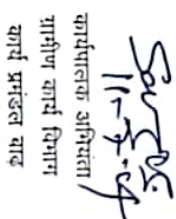 कार्यपालक अभियंता
ग्रामीण कार्य विभाग
कार्य प्रमंडल बाढ़